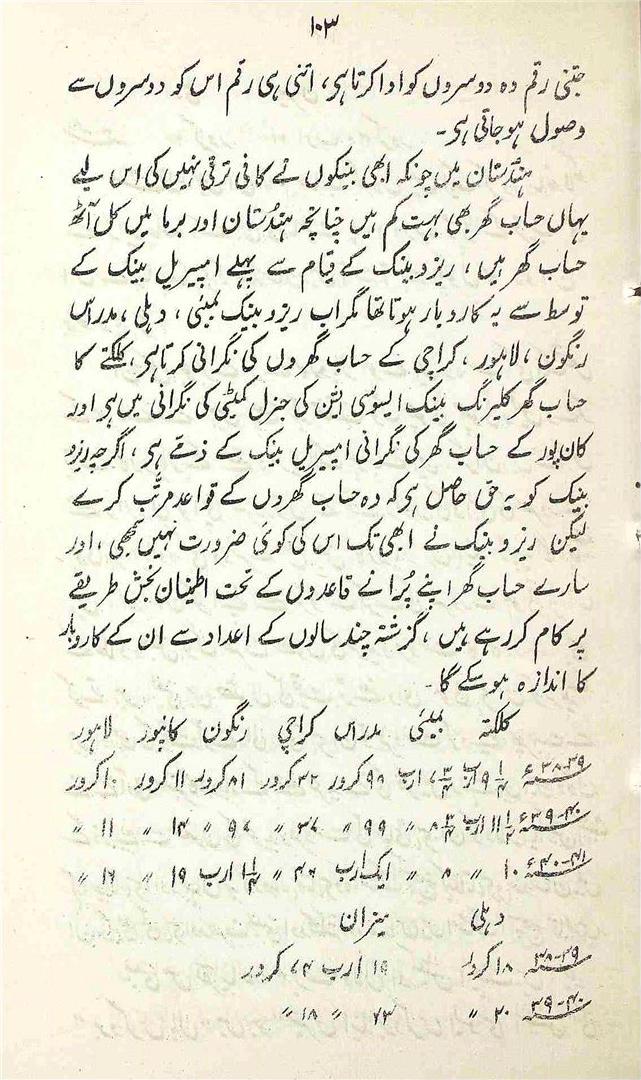 ۱۰۳
جتنی رقم وہ دوسروں کو ادا کرتا ہی، اتنی ہی رقم اس کو دوسروں سے
وصول ہو جاتی ہی۔
ہندُستان میں چونکہ ابھی بینکوں نے کافی ترقی نہیں کی اس لیے
یہاں حساب گھر بھی بہت کم ہیں چنانچہ ہندُستان اور برما میں کل آٹھ
حساب گھر ہیں، ریزرو بینک کے قیام سے پہلے امپیریل بینک کے
توسط سے یہ کاروبار ہوتا تھا مگر اب ریزرو بینک بمبئی، دہلی، مدراس
رنگون، لاہور، کراچی کے حساب گھروں کی نگرانی کرتا ہی، کلکتے کا
حساب گھر کلیرنگ بینک ایسوسی ایشن کی جنرل کمیٹی کی نگرانی میں ہی اور
کان پور کے حساب گھر کی نگرانی امپیریل بینک کے ذمّے ہی، اگرچہ ریزرو
بینک کو یہ حق حاصل ہی کہ وہ حساب گھروں کے قواعد مرتّب کرے
لیکن ریزرو بینک نے ابھی تک اس کی کوئی ضرورت نہیں سمجھی، اور
سارے حساب گھر اپنے پُرانے قاعدوں کے تحت اطمینان بخش طریقے
پر کام کر رہے ہیں، گزشتہ چند سالوں کے اعداد سے ان کے کاروبار
کا اندازہ ہو سکے گا۔
کلکتہ بمبئی مدراس کراچی رنگون کانپور لاہور
۳۹-۳۸ء ۹¼ ارب ۷¾ ارب ۹۸ کرور ۳۲ کرور ۸۱ کرور ۱۱ کرور ۱۰ کرور
۴۰-۳۹ء ۱۱¼ ارب ۸¾ 〃 ۹۹ 〃 ۳۷ 〃 ۹۷ 〃 ۱۴ 〃 ۱۱ 〃
۴۱-۴۰ء ۱۰ 〃 ۸ 〃 ایک ارب ۴۶ 〃 ۱¼ ارب ۱۹ 〃 ۱۶ 〃
دہلی میزان
۳۹-۳۸ ۱۸ کرور ۱۹ ارب ۷۴ کرور
۴۰-۳۹ ۲۰ 〃 ۲۳ 〃 ۱۸ 〃